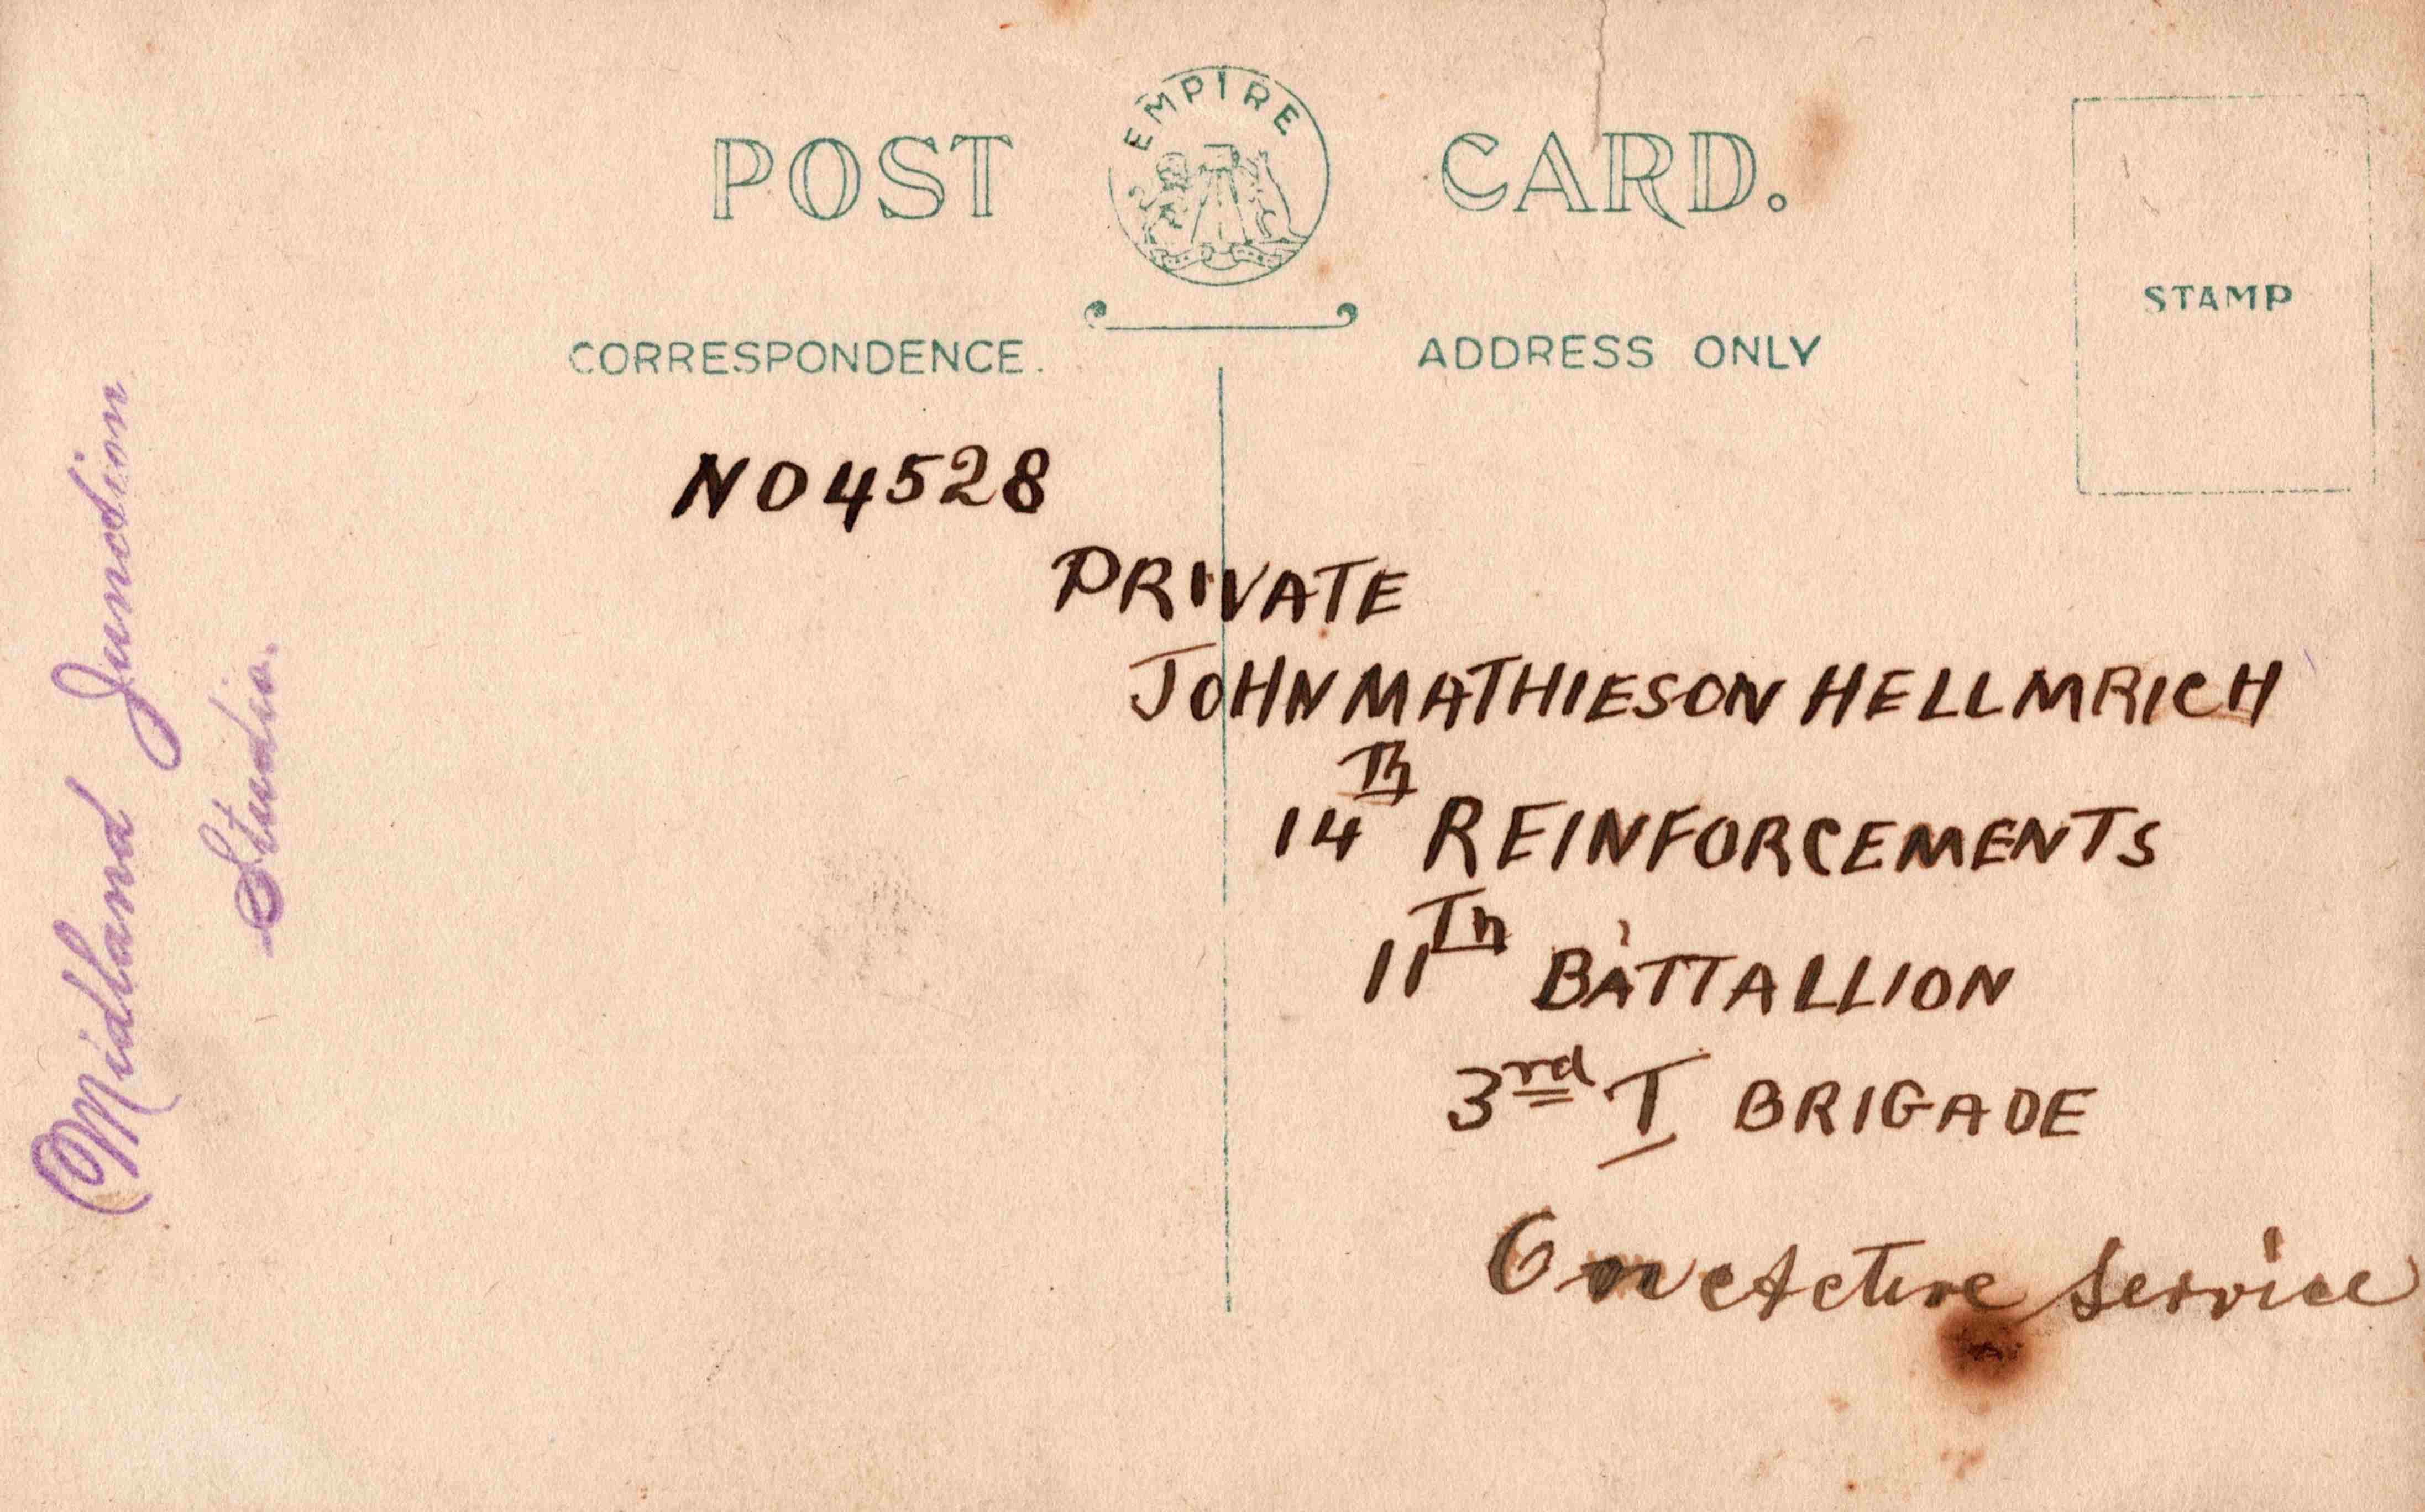 EMPIRE
POST CARD.
CORRESPONDENCE.
ADDRESS ONLY
STAMP
Midland Junction
Studio.
NO 4528
PRIVATE
JOHN MATHIESON HELLMRICH
14TH REINFORCEMENTS
11Th BATTALLION
3rd I BRIGADE
On Active Service